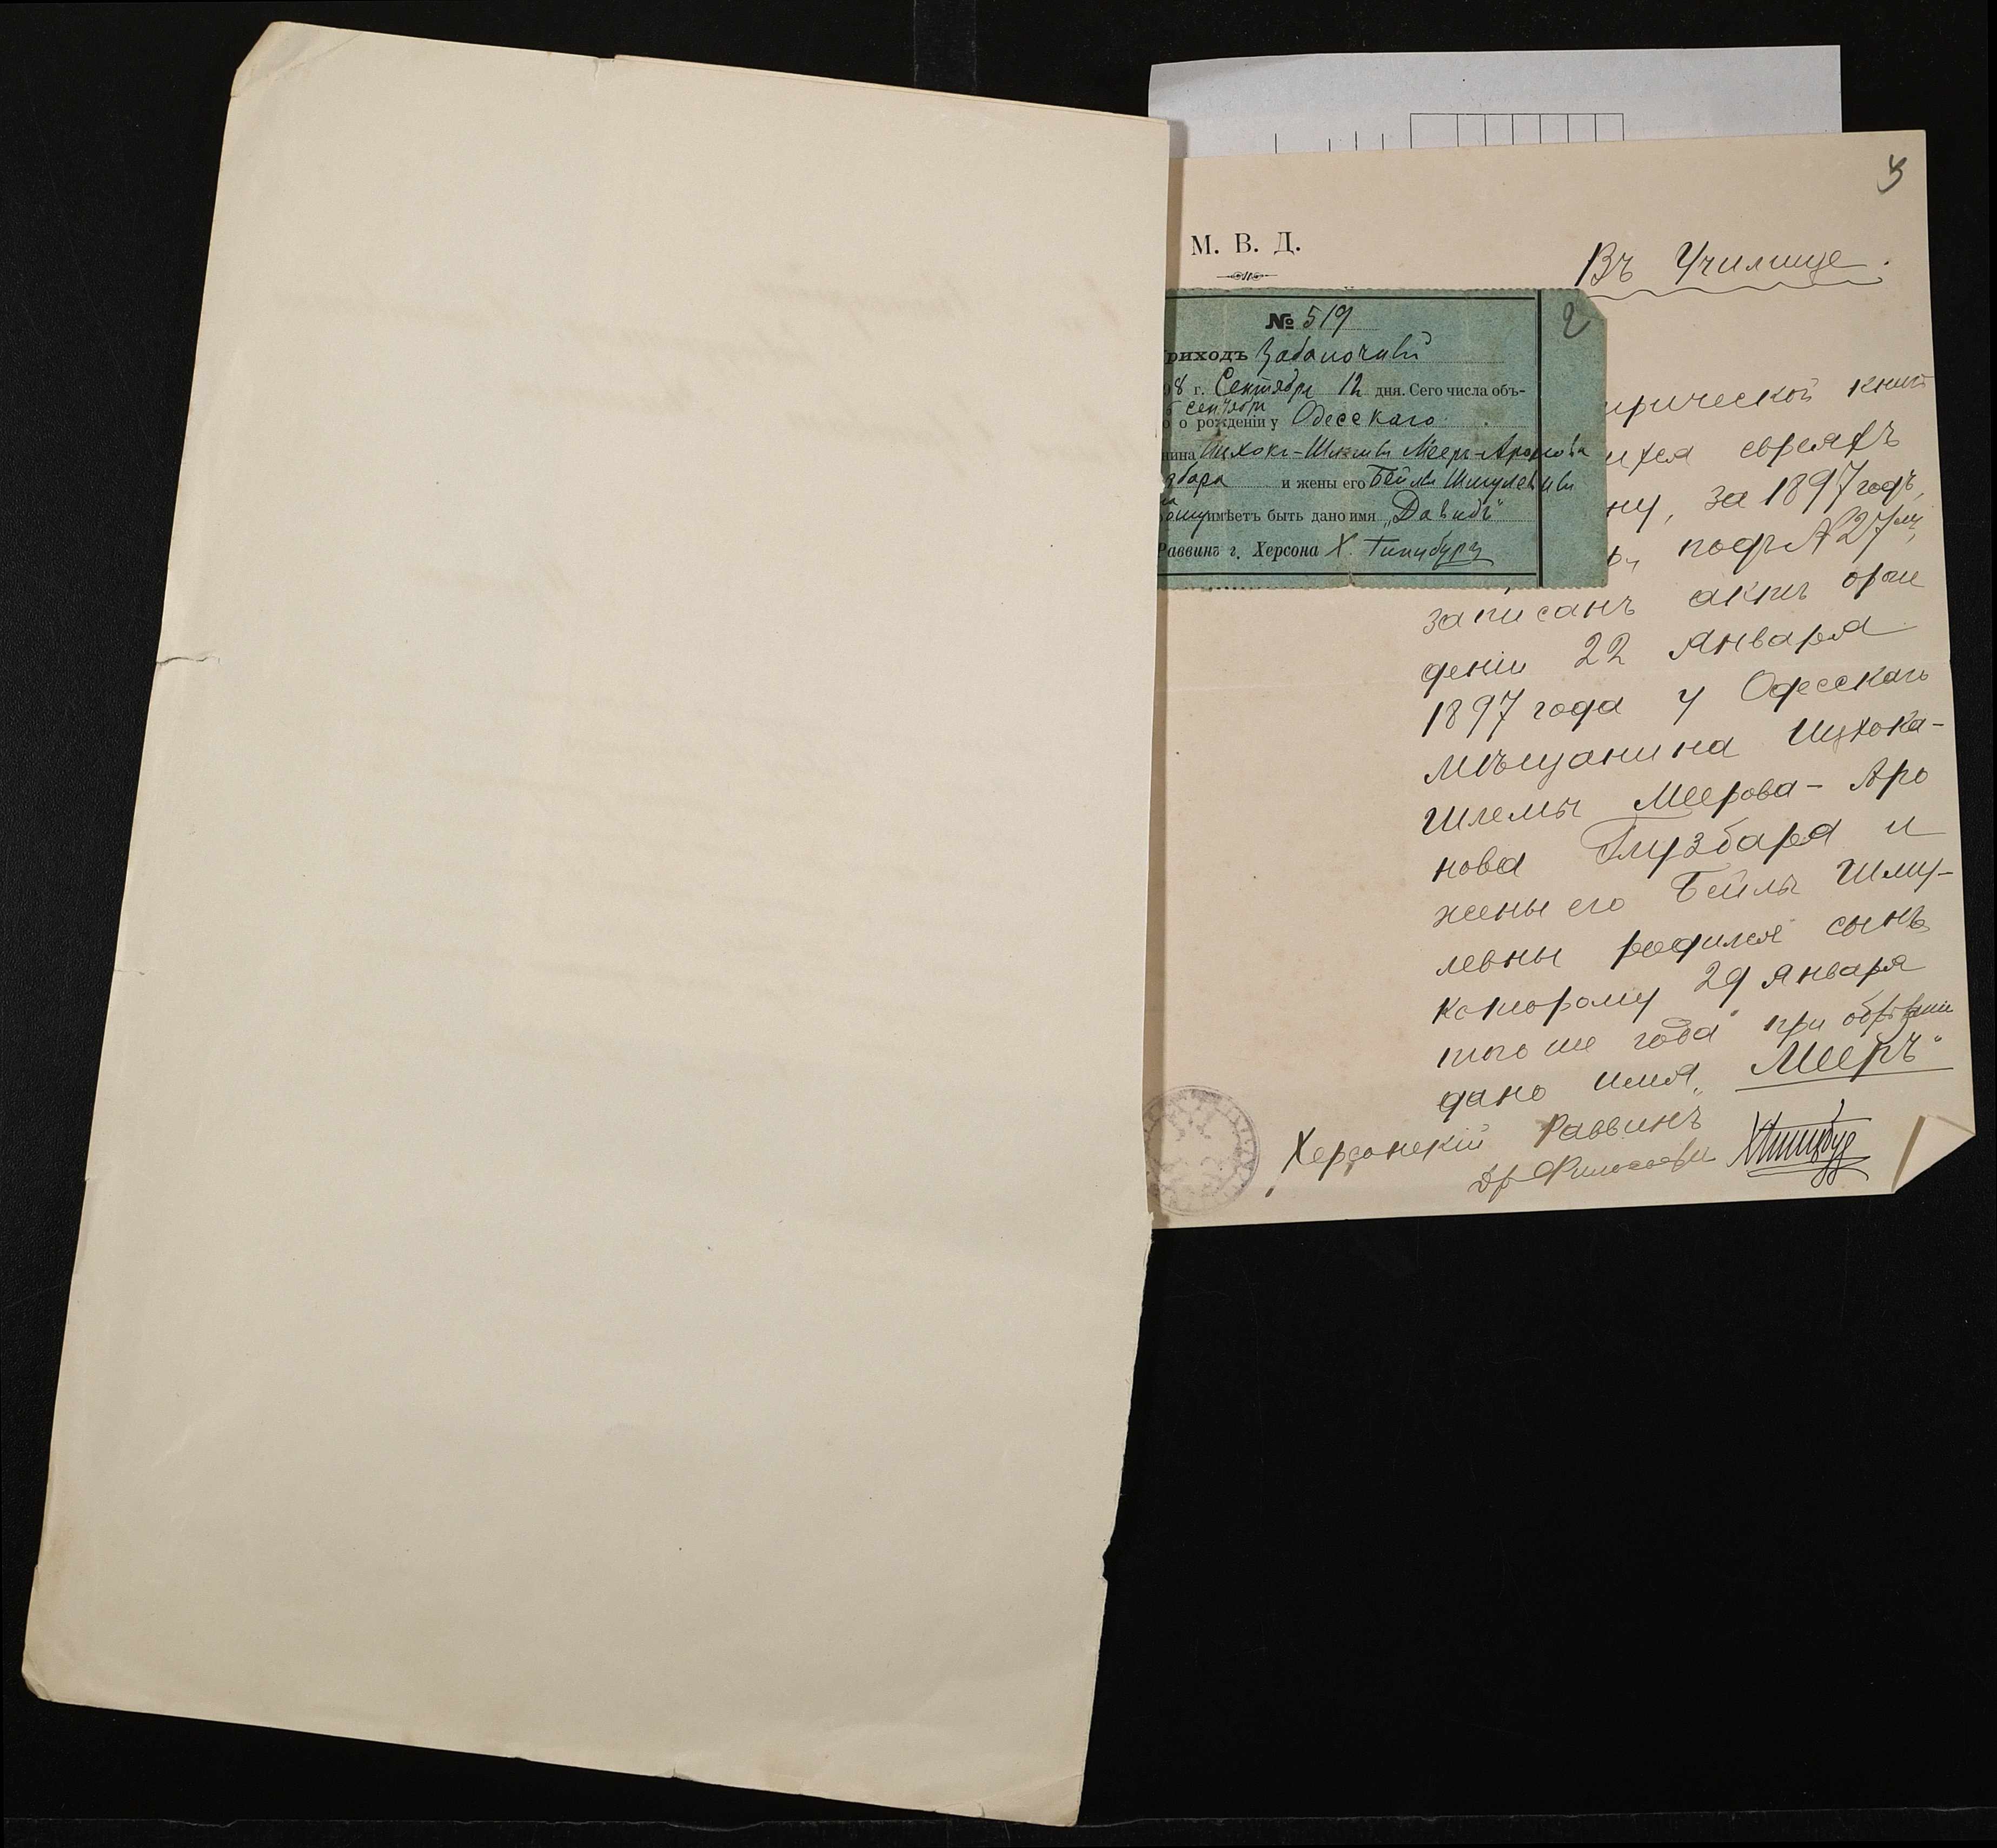 3
М. В. Д.
Въ Училище.
2
№ 519
риходъ Забалочный
08 г. Сентября 12 дня. Сего числа объ-
5 сентября
о рожденіи у Одесскаго
нина Ицхокъ-Шлемы Мееръ-Аронова
збара и жены его Бейлы Шмулевны
имѣетъ быть дано имя „Давидъ"
Раввинъ г. Херсона Х. Гинцбургъ
ирической книг
ихся евреяхъ
ну, за 1897 годъ,
подъ № 27м,
записанъ актъ о рож
деніи 22 Января
1897 года у Одесскаго
мѣщанина Ицхока-
Шлемы Меерова-Аро
нова Глузбара и
жены его Бейлы Шму-
левны родился сынъ
которому 29 Января
того же года при обрѣзаніи
дано имя „Мееръ"
Херсонскій Раввинъ
Др Философіи ХГинцбург